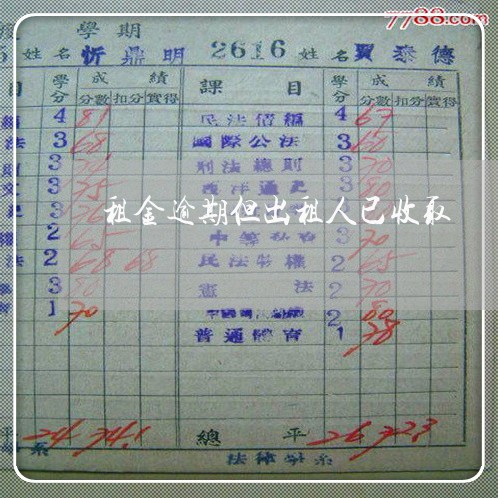 7788.com
學期
姓名 忻鼎明 2616 姓名 賈泰德
目 學分 成績 課目 學分 成績
分數 扣分 實得 分數 扣分 實得
4 81 民法債編 4 67
法 3 68 國際公法 3 60
則 3 刑法總則 3 70
3 75 西洋通史 3 80
租金逾期但出租人已收取
2 65 3 70
法 2 68 68 民法物權 2 65
3 80 憲法 2 70
育 1 70 2 80
普通體育 1 78
平 24 74.1 總平 26 72.3
系 法律學系